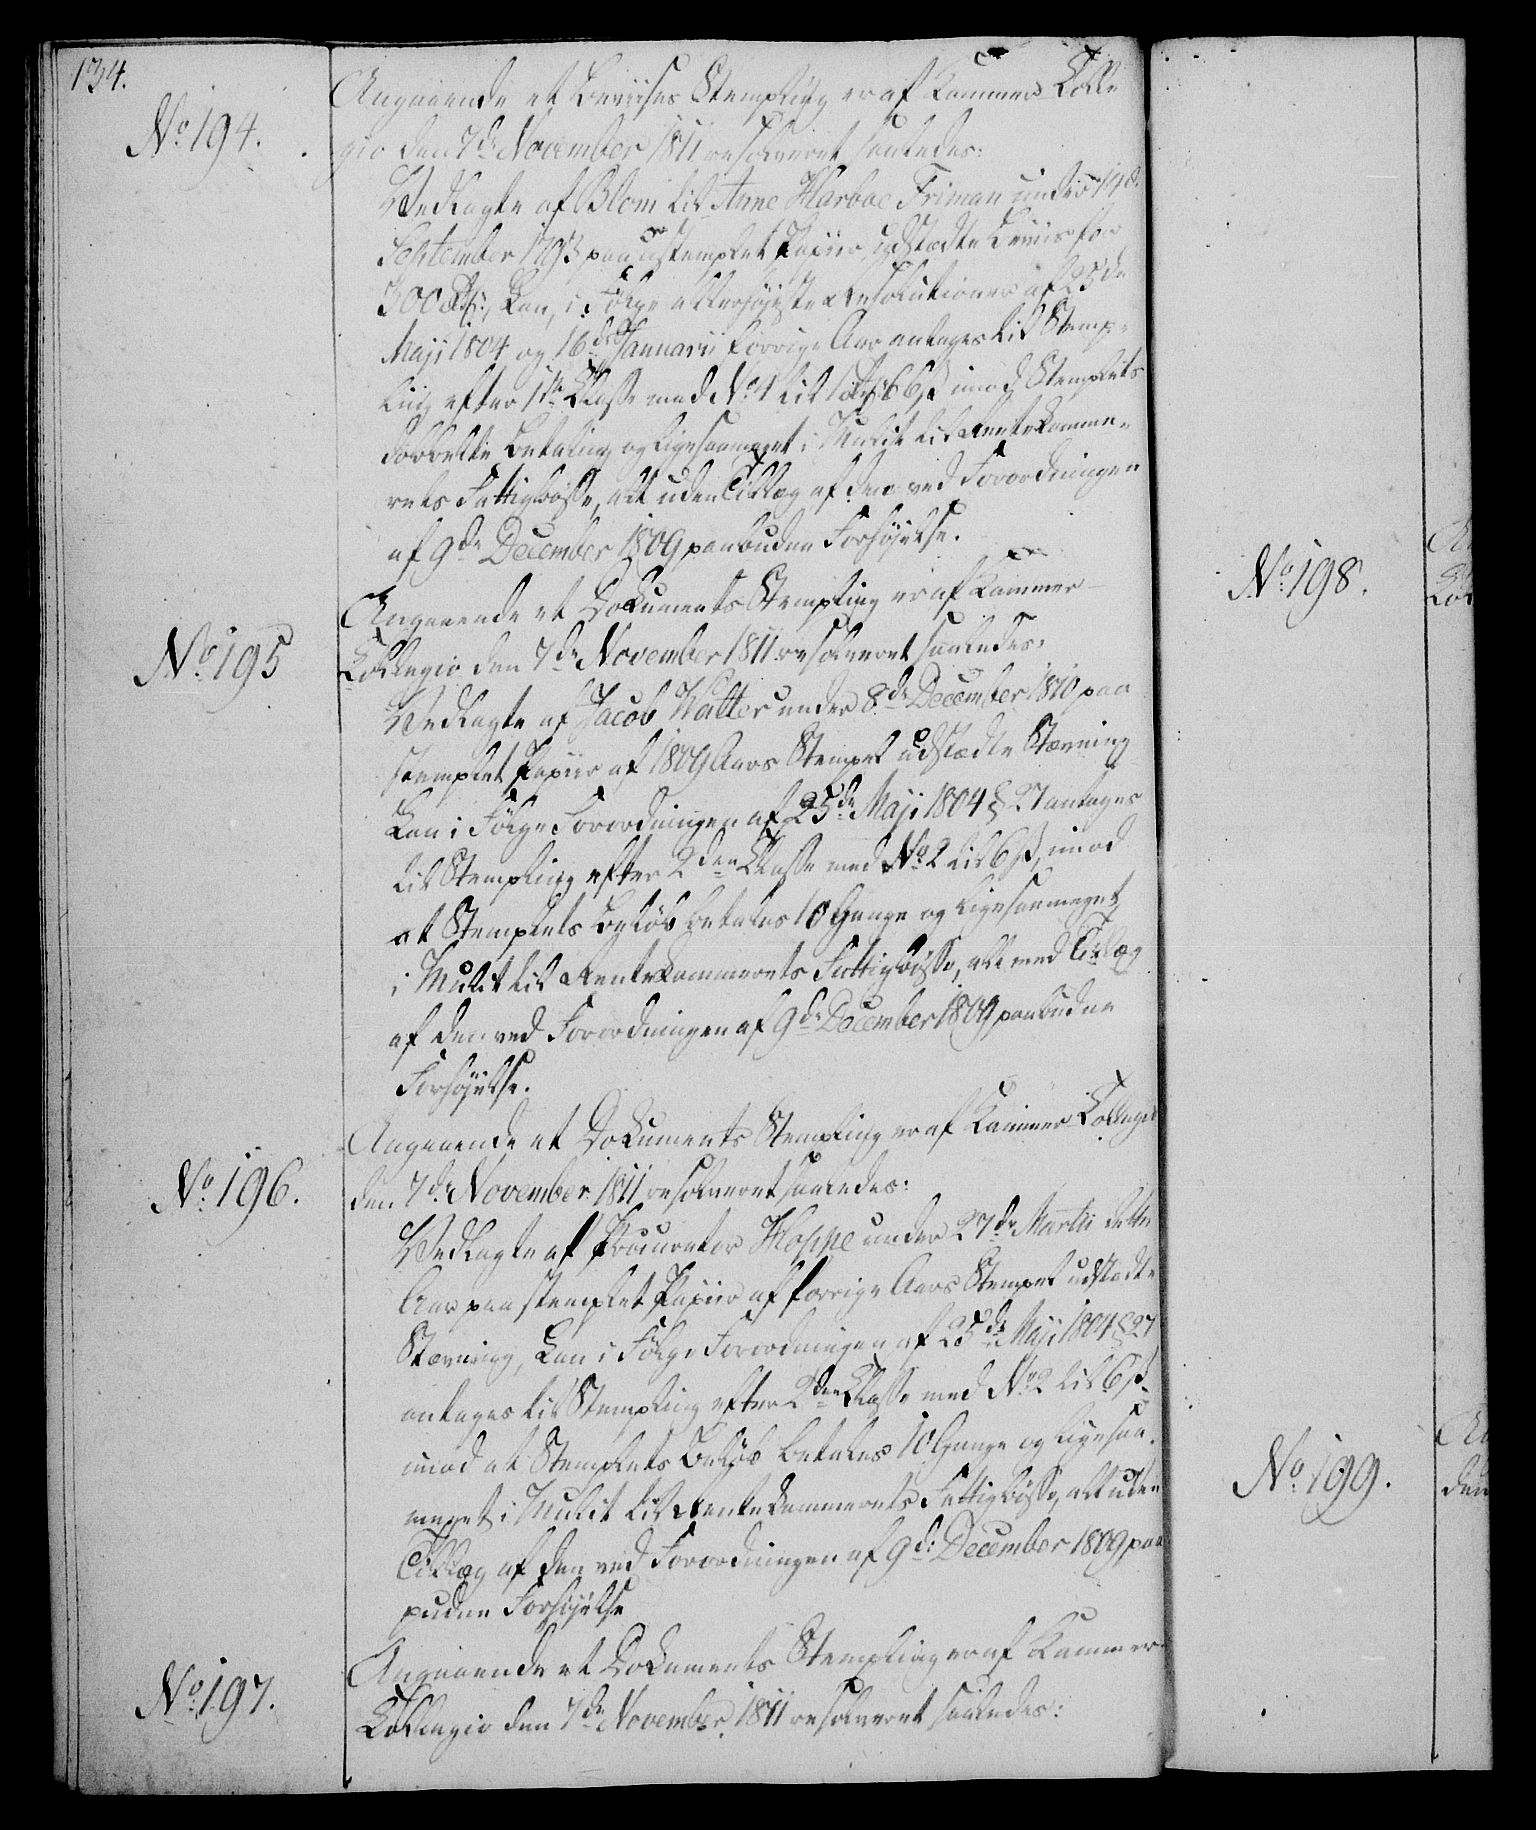 134.
No 194.
Angaaende et Beviises Stempling er af Kammer Colle
gio den 7de November 1811 resolveret saaledes:
Vedlagte af Blom til Anne Harboe Friman under 14de
September 1793 paa ustemplet Papiir udstædte Beviis for
300 Rd, kan, i Følge allerhøjeste Resolutioner af 25de
Maji 1804 og 16de Januarii forrige Aar antages til Stemp-
ling efter 1ste Classe med No 4 til 1 Rd 66 ß imod Stemplets
dobbelte Betaling og ligesaameget i Mulct til Rentekamme-
rets Fattigbøsse, alt uden Tillæg af den ved Forordningen
af 9de December 1809 paabudne Forhøjelse.
No 195
Angaaende et Dokuments Stempling er af Kammer
Collegio den 7de November 1811 resolveret saaledes:
Vedlagte af Jacob Walter under 8de December 1810 paa
stemplet Papiir af 1809 Aars Stempel udstædte Stævning
kan i Følge Forordningen af 25de Maji 1804 § 27 antages
til Stempling efter 2den Classe med No 2 til 6 ß, imod
at Stemplets Beløb betales 10 Gange og ligesaameget
i Mulct til Rentekammerets Fattigbøsse, alt med Tillæg
af den ved Forordningen af 9de December 1809 paabudne
Forhøjelse.
No 196.
Angaaende et Dokuments Stempling er af Kammer Collegio
den 7de November 1811 resolveret saaledes:
Vedlagte af Procurator Hoppe under 27de Martii dette
Aar paa stemplet Papiir af forrige Aars Stempel udstædte
Stævning, kan i Følge Forordningen af 25de Maji 1804 § 27
antages til Stempling efter 2den Classe med No 2 til 6 ß.
imod at Stemplets Beløb betales 10 Gange og ligesaa-
meget i Mulct til Rentekammerets Fattigbøsse, alt uden
Tillæg af den ved Forordningen af 9de December 1809 paa
puden Forhøjelse
No 197.
Angaaende et Dokuments Stempling er af Kammer
Collegio den 7de November 1811 resolveret saaledes:
No 198.
No 199.
den